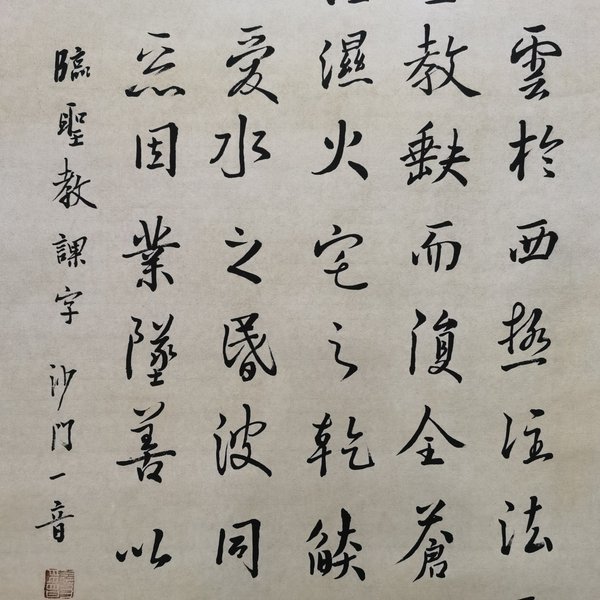 雲於西極注法
教缺而復全蒼
濕火宅之乾燄
愛水之昬波同
惡因業墜善以
臨聖教課字 沙門一音